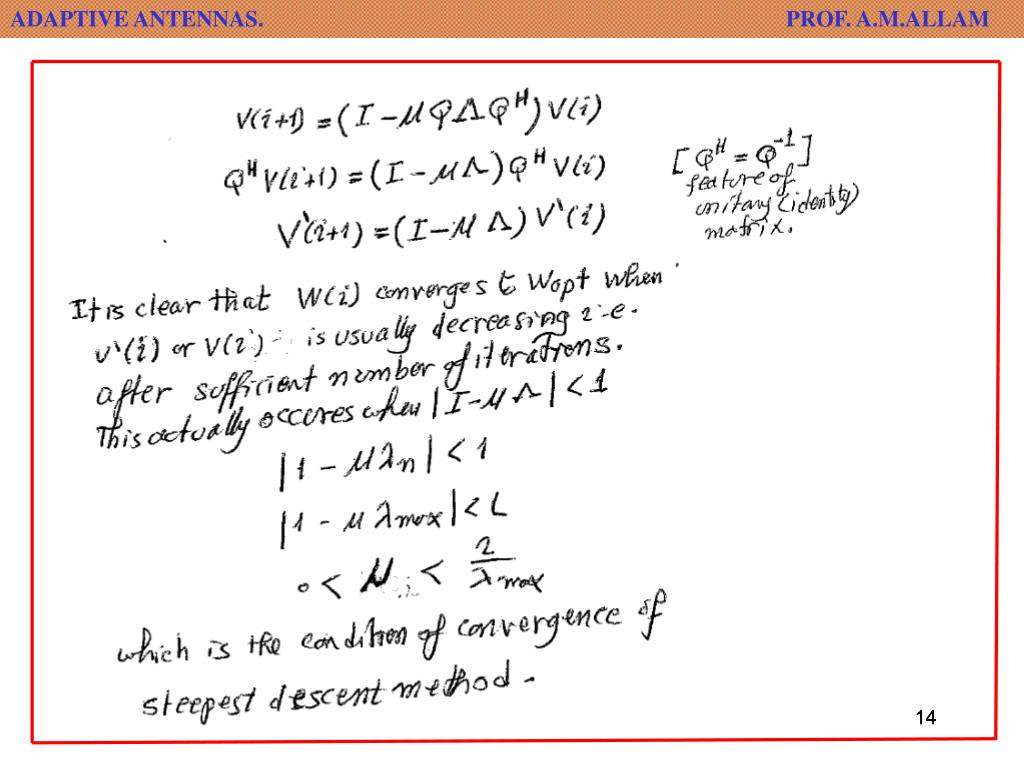 ADAPTIVE ANTENNAS. PROF. A.M.ALLAM
V(i+1) = (I - μQΛQᴴ) V(i)
Qᴴ V(i+1) = (I - μΛ) Qᴴ V(i) [Qᴴ = Q⁻¹]
feature of
unitary (identity)
matrix.
V'(i+1) = (I - μ Λ) V'(i)
It is clear that W(i) converges to Wopt when
v'(i) or V(i) is usually decreasing i.e.
after sufficient number of iterations.
This actually occures when |I - μ Λ| < 1
|1 - μλn| < 1
|1 - μ λmax| < 1
0 < μ < 2/λmax
which is the condition of convergence of
steepest descent method.
14